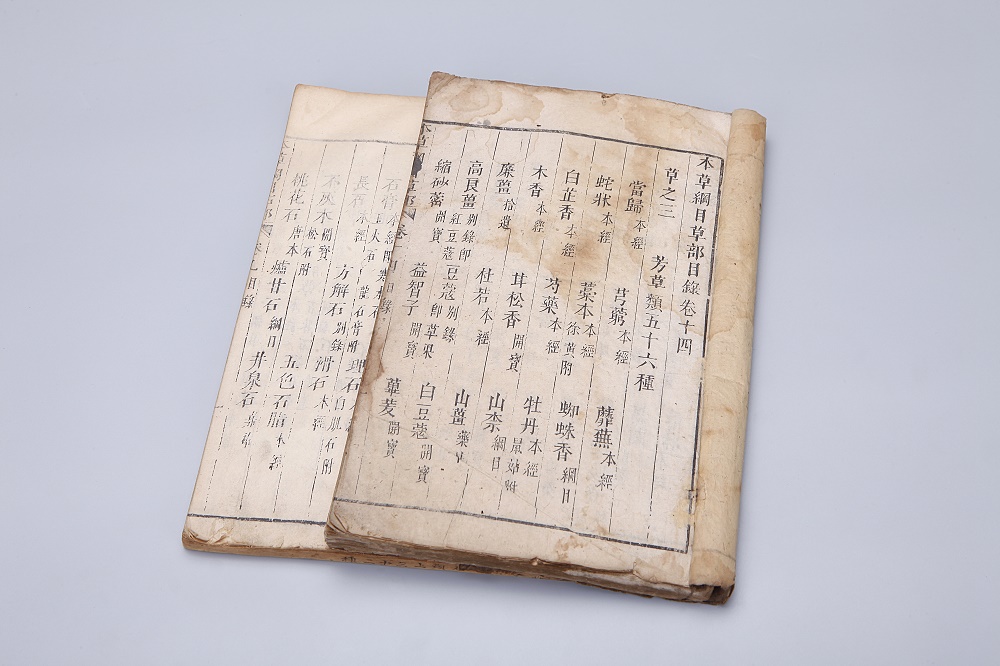 本草綱目草部目錄卷十四
草之三　芳草類五十六種
當歸本經　芎藭本經　蘼蕪本經
蛇牀本經　藁本本經徐黃附　蜘蛛香綱目
白芷香本經　芍藥本經　牡丹本經鼠姑附
木香本經　甘松香開寶　山柰綱目
廉薑拾遺　杜若本經　山薑藥性
高良薑別錄即紅豆蔻　豆蔻別錄即草果　白豆蔻開寶
縮砂蔤開寶　益智子開寶　蓽茇開寶
石膏本經
長石本經　理石
不灰木開寶松石附　方解石別錄　滑石本經白肌石附
桃花石唐本　爐甘石綱目　五色石脂本經
井泉石嘉祐